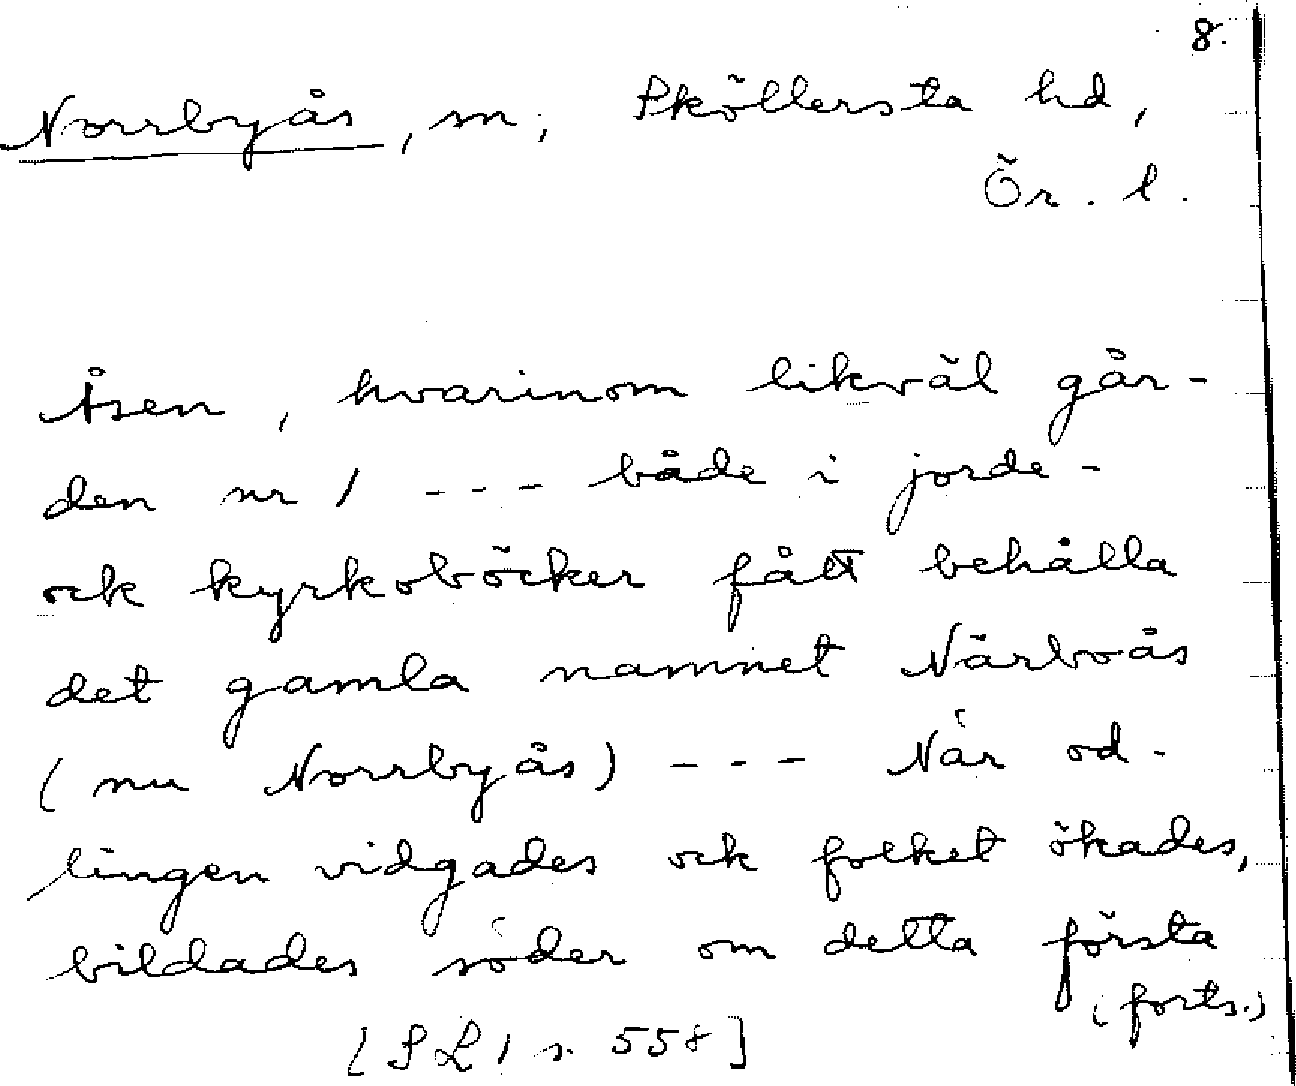 8.
Norrbyås, sn; Sköllersta hd,
Ör. l.
Åsen, hvarinom likväl går-
den nr 1 --- både i jorde-
ock kyrkoböcker fått behålla
det gamla namnet Närboås
(nu Norrbyås) --- När od-
lingen vidgades ock folket ökades,
bildades söder om detta första
(forts.)
[SL 1 s. 558]